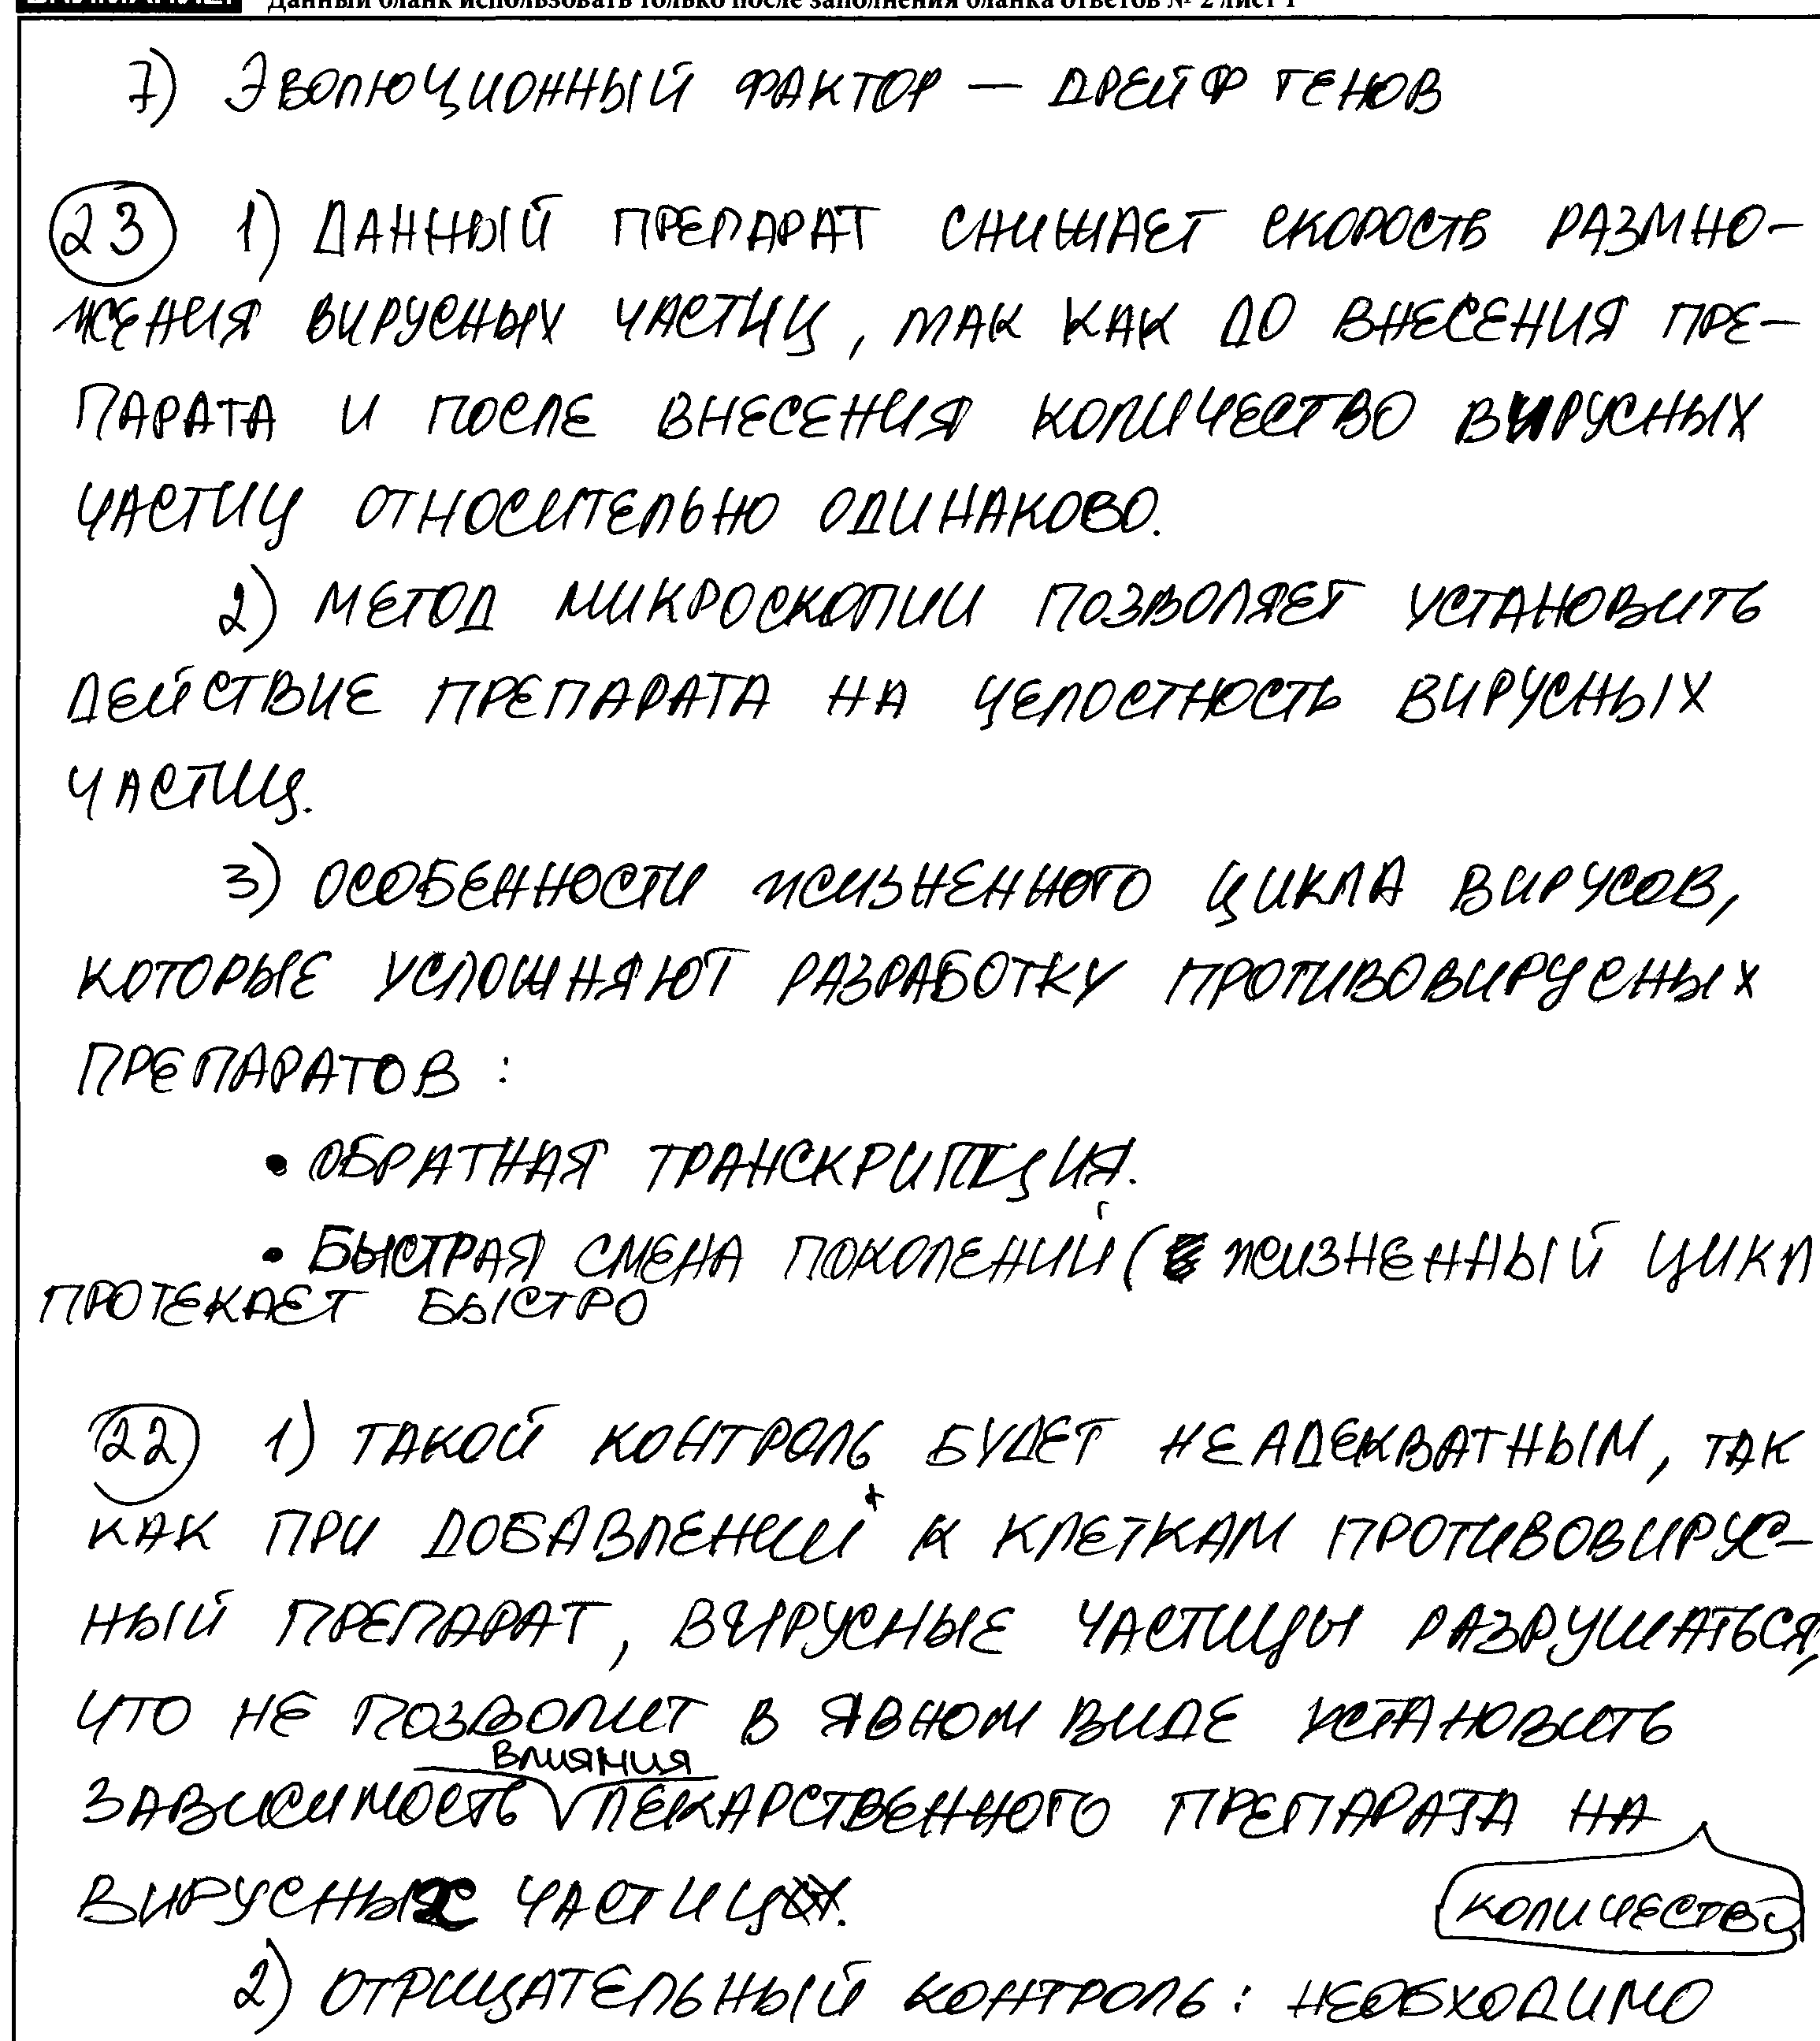 ВНИМАНИЕ! Данный бланк использовать только после заполнения бланка ответов № 2 лист 1
7) Эволюционный фактор — дрейф генов
23 1) Данный препарат снижает скорость размно-
жения вирусных частиц, так как до внесения пре-
парата и после внесения количество вирусных
частиц относительно одинаково.
2) Метод микроскопии позволяет установить
действие препарата на целостность вирусных
частиц.
3) Особенности жизненного цикла вирусов,
которые усложняют разработку противовирусных
препаратов :
• Обратная транскрипция.
• Быстрая смена поколений ( жизненный цикл
протекает быстро
22 1) Такой контроль будет неадекватным, так
как при добавлении к клеткам противовирус-
ный препарат, вирусные частицы разрушаться,
что не позволит в явном виде установить
влияния
зависимость лекарственного препарата на
вирусных частиц. количество
2) Отрицательный контроль : необходимо